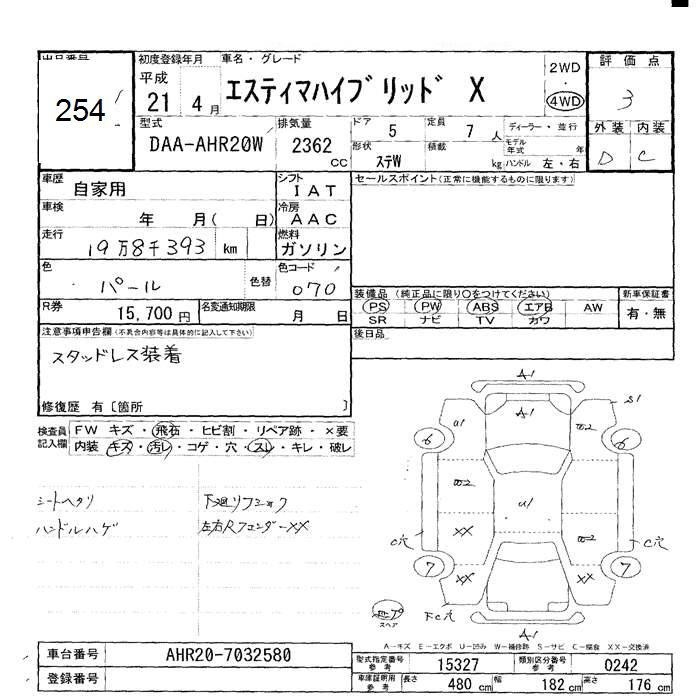 出品番号
254
初度登録年月 車名・グレード
平成
21 4月
エスティマハイブリッド X
2WD
・
4WD
評価点
3
外装 内装
D C
型式
DAA-AHR20W
排気量
2362
cc
ドア 5
定員 7 人
ディーラー・並行
形状 ステW
積載 kg
モデル年式 年
ハンドル 左・右
車歴 自家用
シフト
IAT
セールスポイント(正常に機能するものに限ります)
車検 年 月( 日)
冷房
AAC
走行 19万8千393 km
燃料
ガソリン
色 パール 色替
色コード
070
R券 15,700円
名変通知期限 月 日
装備品 (純正品に限り○をつけてください)
PS PW ABS エアB AW
SR ナビ TV カワ
新車保証書
有・無
後日品
注意事項申告欄(不具合内容等は具体的に記入して下さい)
スタッドレス装着
修復歴 有〔箇所 〕
検査員記入欄
FW キズ・飛石・ヒビ割・リペア跡・×要
内装 キズ・汚レ・コゲ・穴・スレ・キレ・破レ
シートヘタリ
ハンドルハゲ
下廻リフショク
左右Rフェンダーxx
A1
S1
U1 A1 W2
6 6
W2 U1
XX W2
C穴 C穴
7 XX XX 7
FC穴
A1
スペア
A-キズ E-エクボ U-凹み W-補修跡 S-サビ C-腐食 XX-交換済
車台番号 AHR20-7032580
登録番号
型式指定番号参考 15327
類別区分番号参考 0242
車庫証明用参考 長さ 480 cm 幅 182 cm 高さ 176 cm